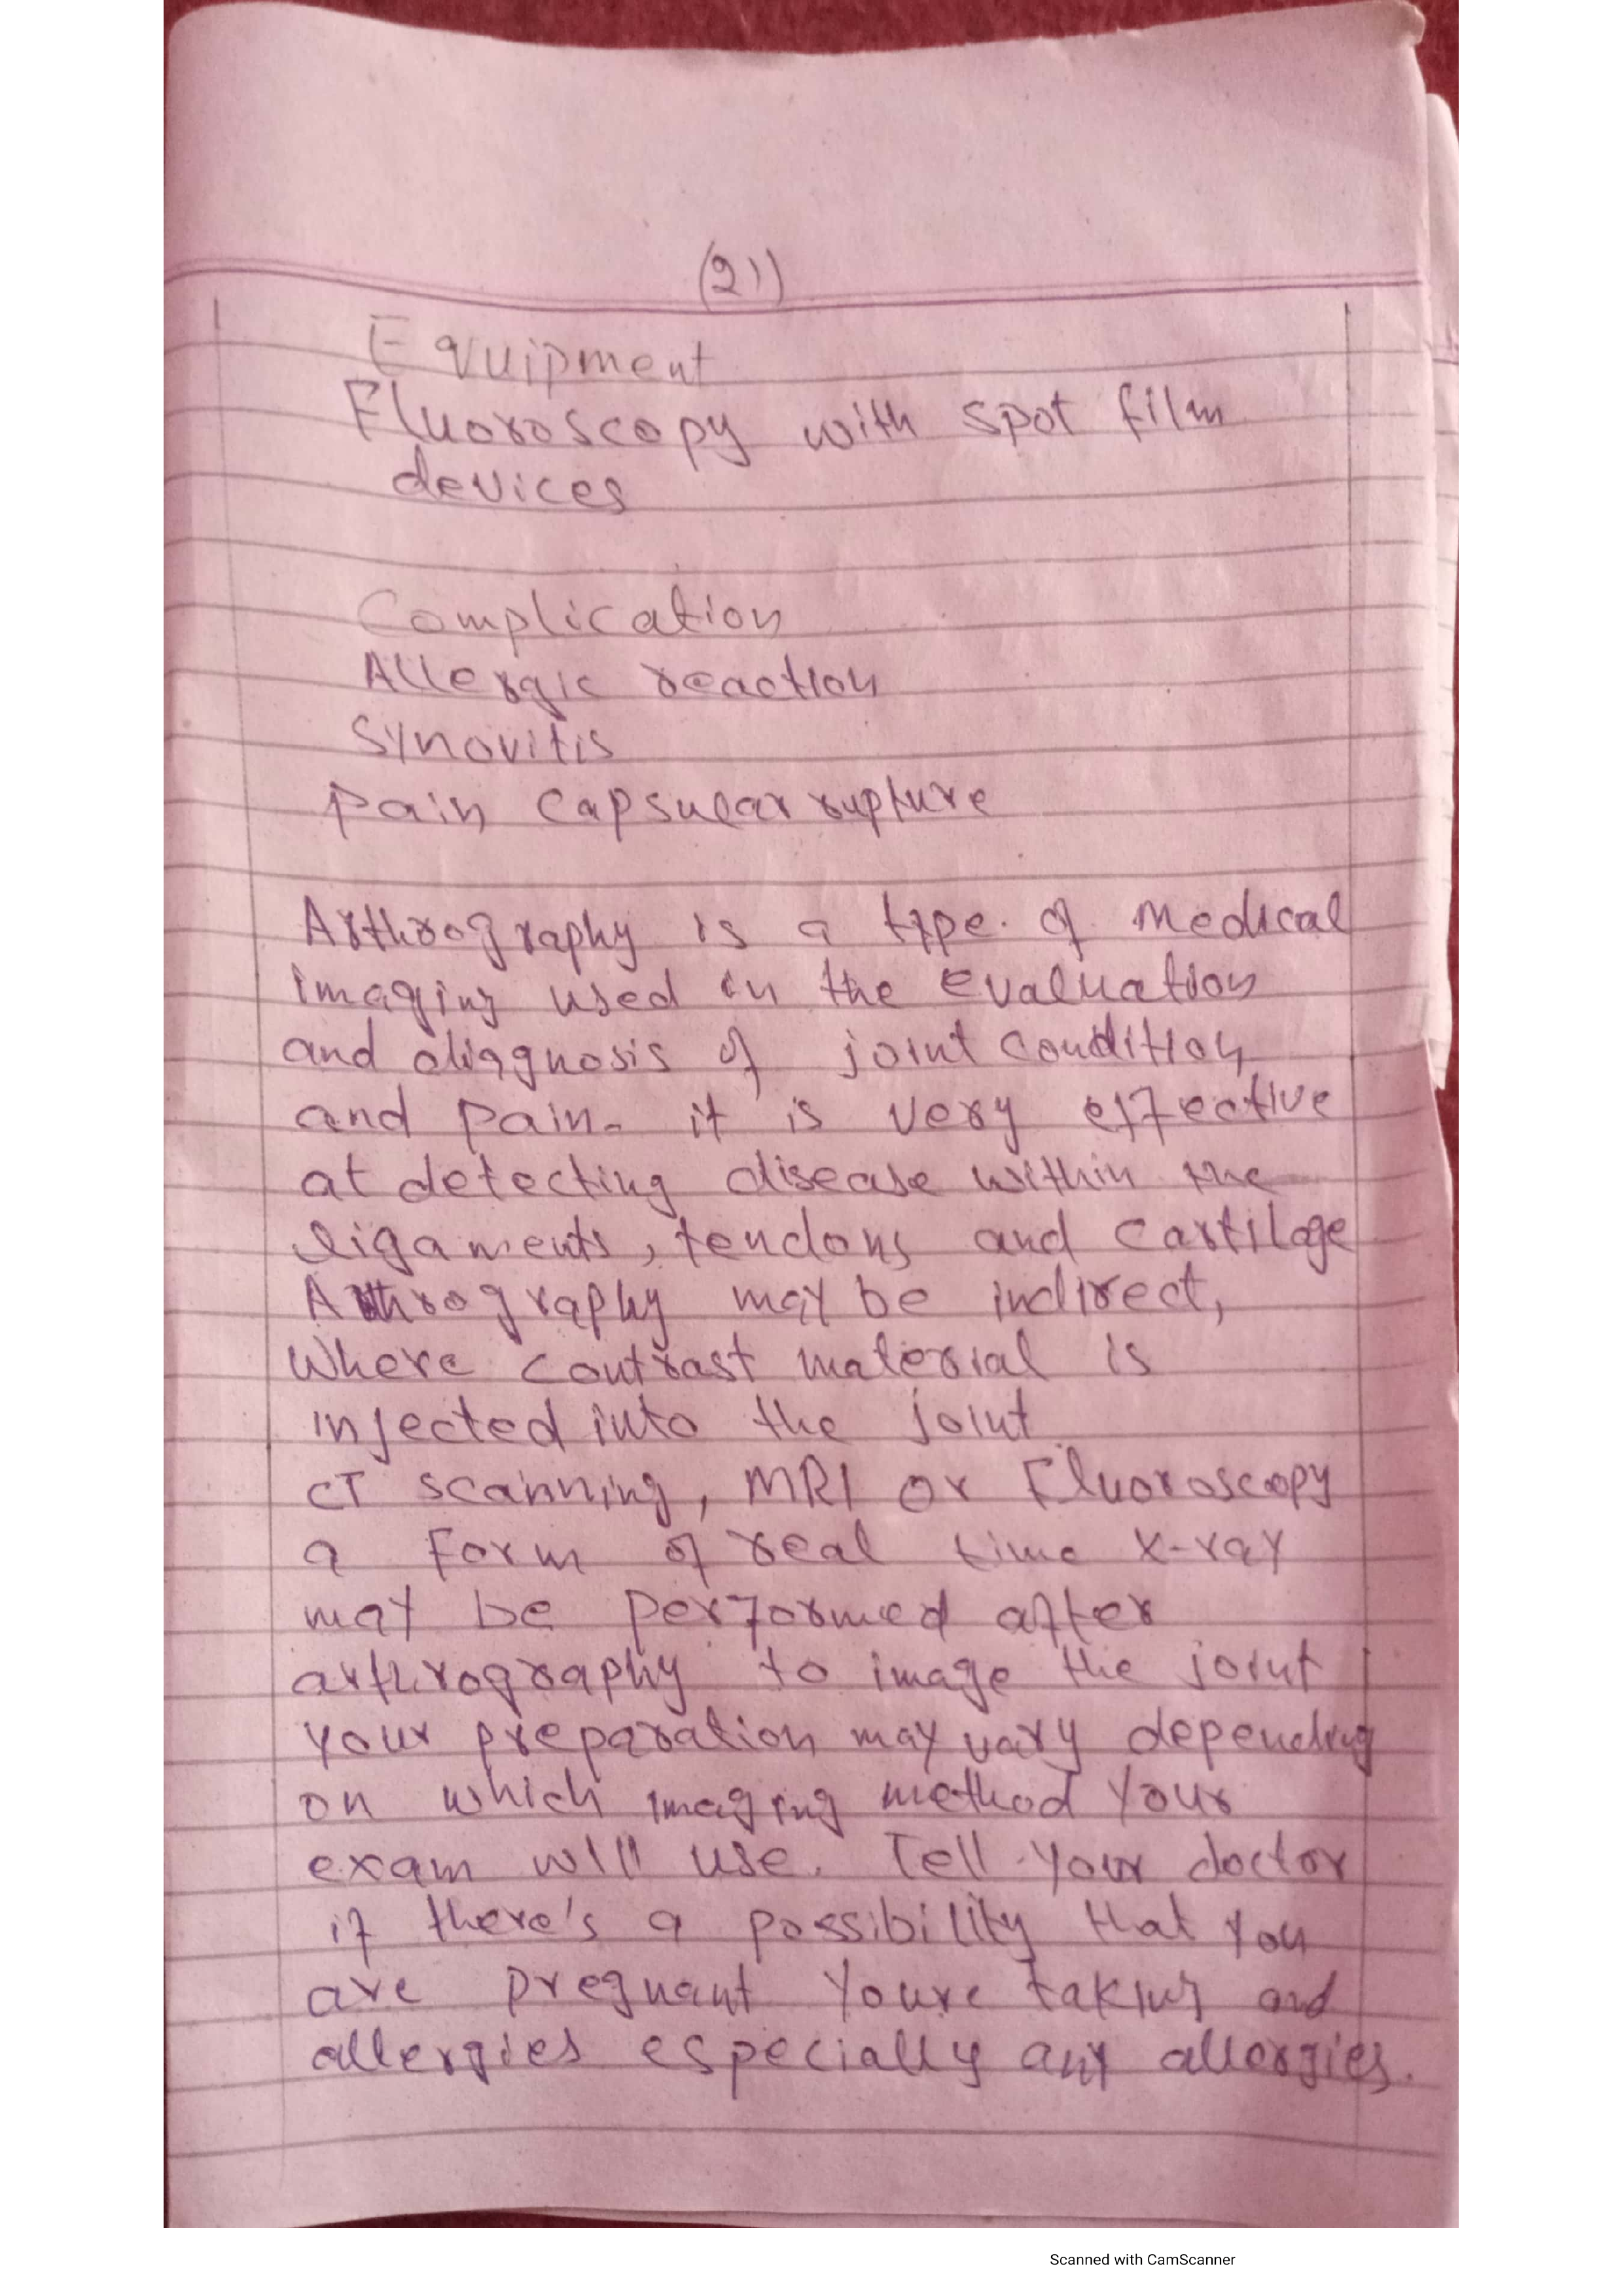 (21)
Equipment
Fluoroscopy with spot film
devices
Complication
Allergic reaction
Synovitis
Pain capsular rupture
Arthrography is a type. of medical
imaging used in the evaluation
and diagnosis of joint condition
and pain. it is very effective
at detecting disease within the
ligaments, tendons and cartilage
Arthrography may be indirect,
where contrast material is
injected into the joint
CT scanning, MRI or Fluoroscopy
a form of real time x-ray
may be performed after
arthrography to image the joint
your preparation may vary depending
on which imaging method your
exam will use. Tell your doctor
if there's a possibility that you
are pregnant youre taking and
allergies especially any allergies.
Scanned with CamScanner